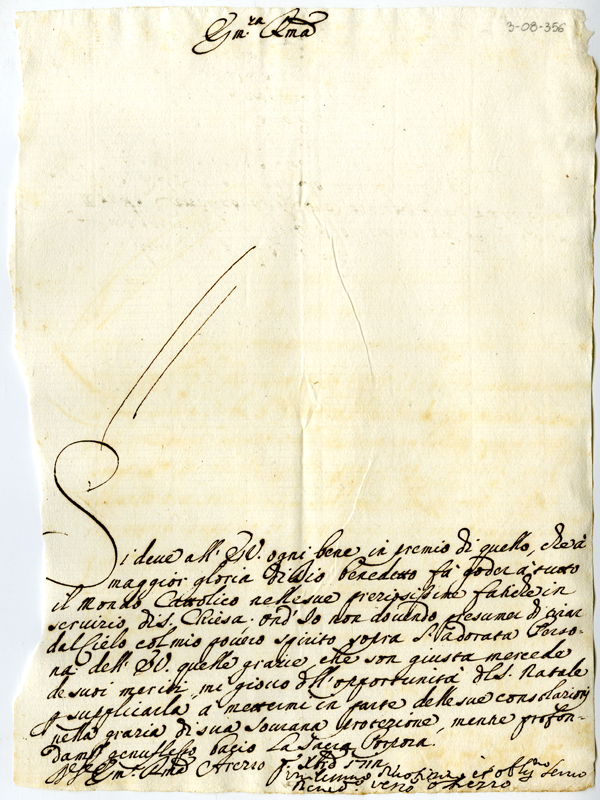 Em.ra Rma
3-08-356
Si deve all' EV. ogni bene in premio di quello, che à
maggior gloria di Dio benedetto fà goder à tutto
il mondo Cattolico nelle sue preziosissime fatiche in
servizio di S. Chiesa. ond' Io non dovendo presumer di tirar
dal Cielo col mio povero spirito sopra l'adorata Perso-
na dell' EV. quelle grazie, che son giusta mercede
de suoi meriti, mi giovo dell' opportunità del S. Natale
p supplicarla à mettermi in parte delle sue consolazioni
nella grazia di sua sovrana protezione, mentre profon-
damte genuflesso bacio La Sacra Porpora.
Em. Rma Arezzo
Umilmo et obblig Servo
Vesco d'Arezzo